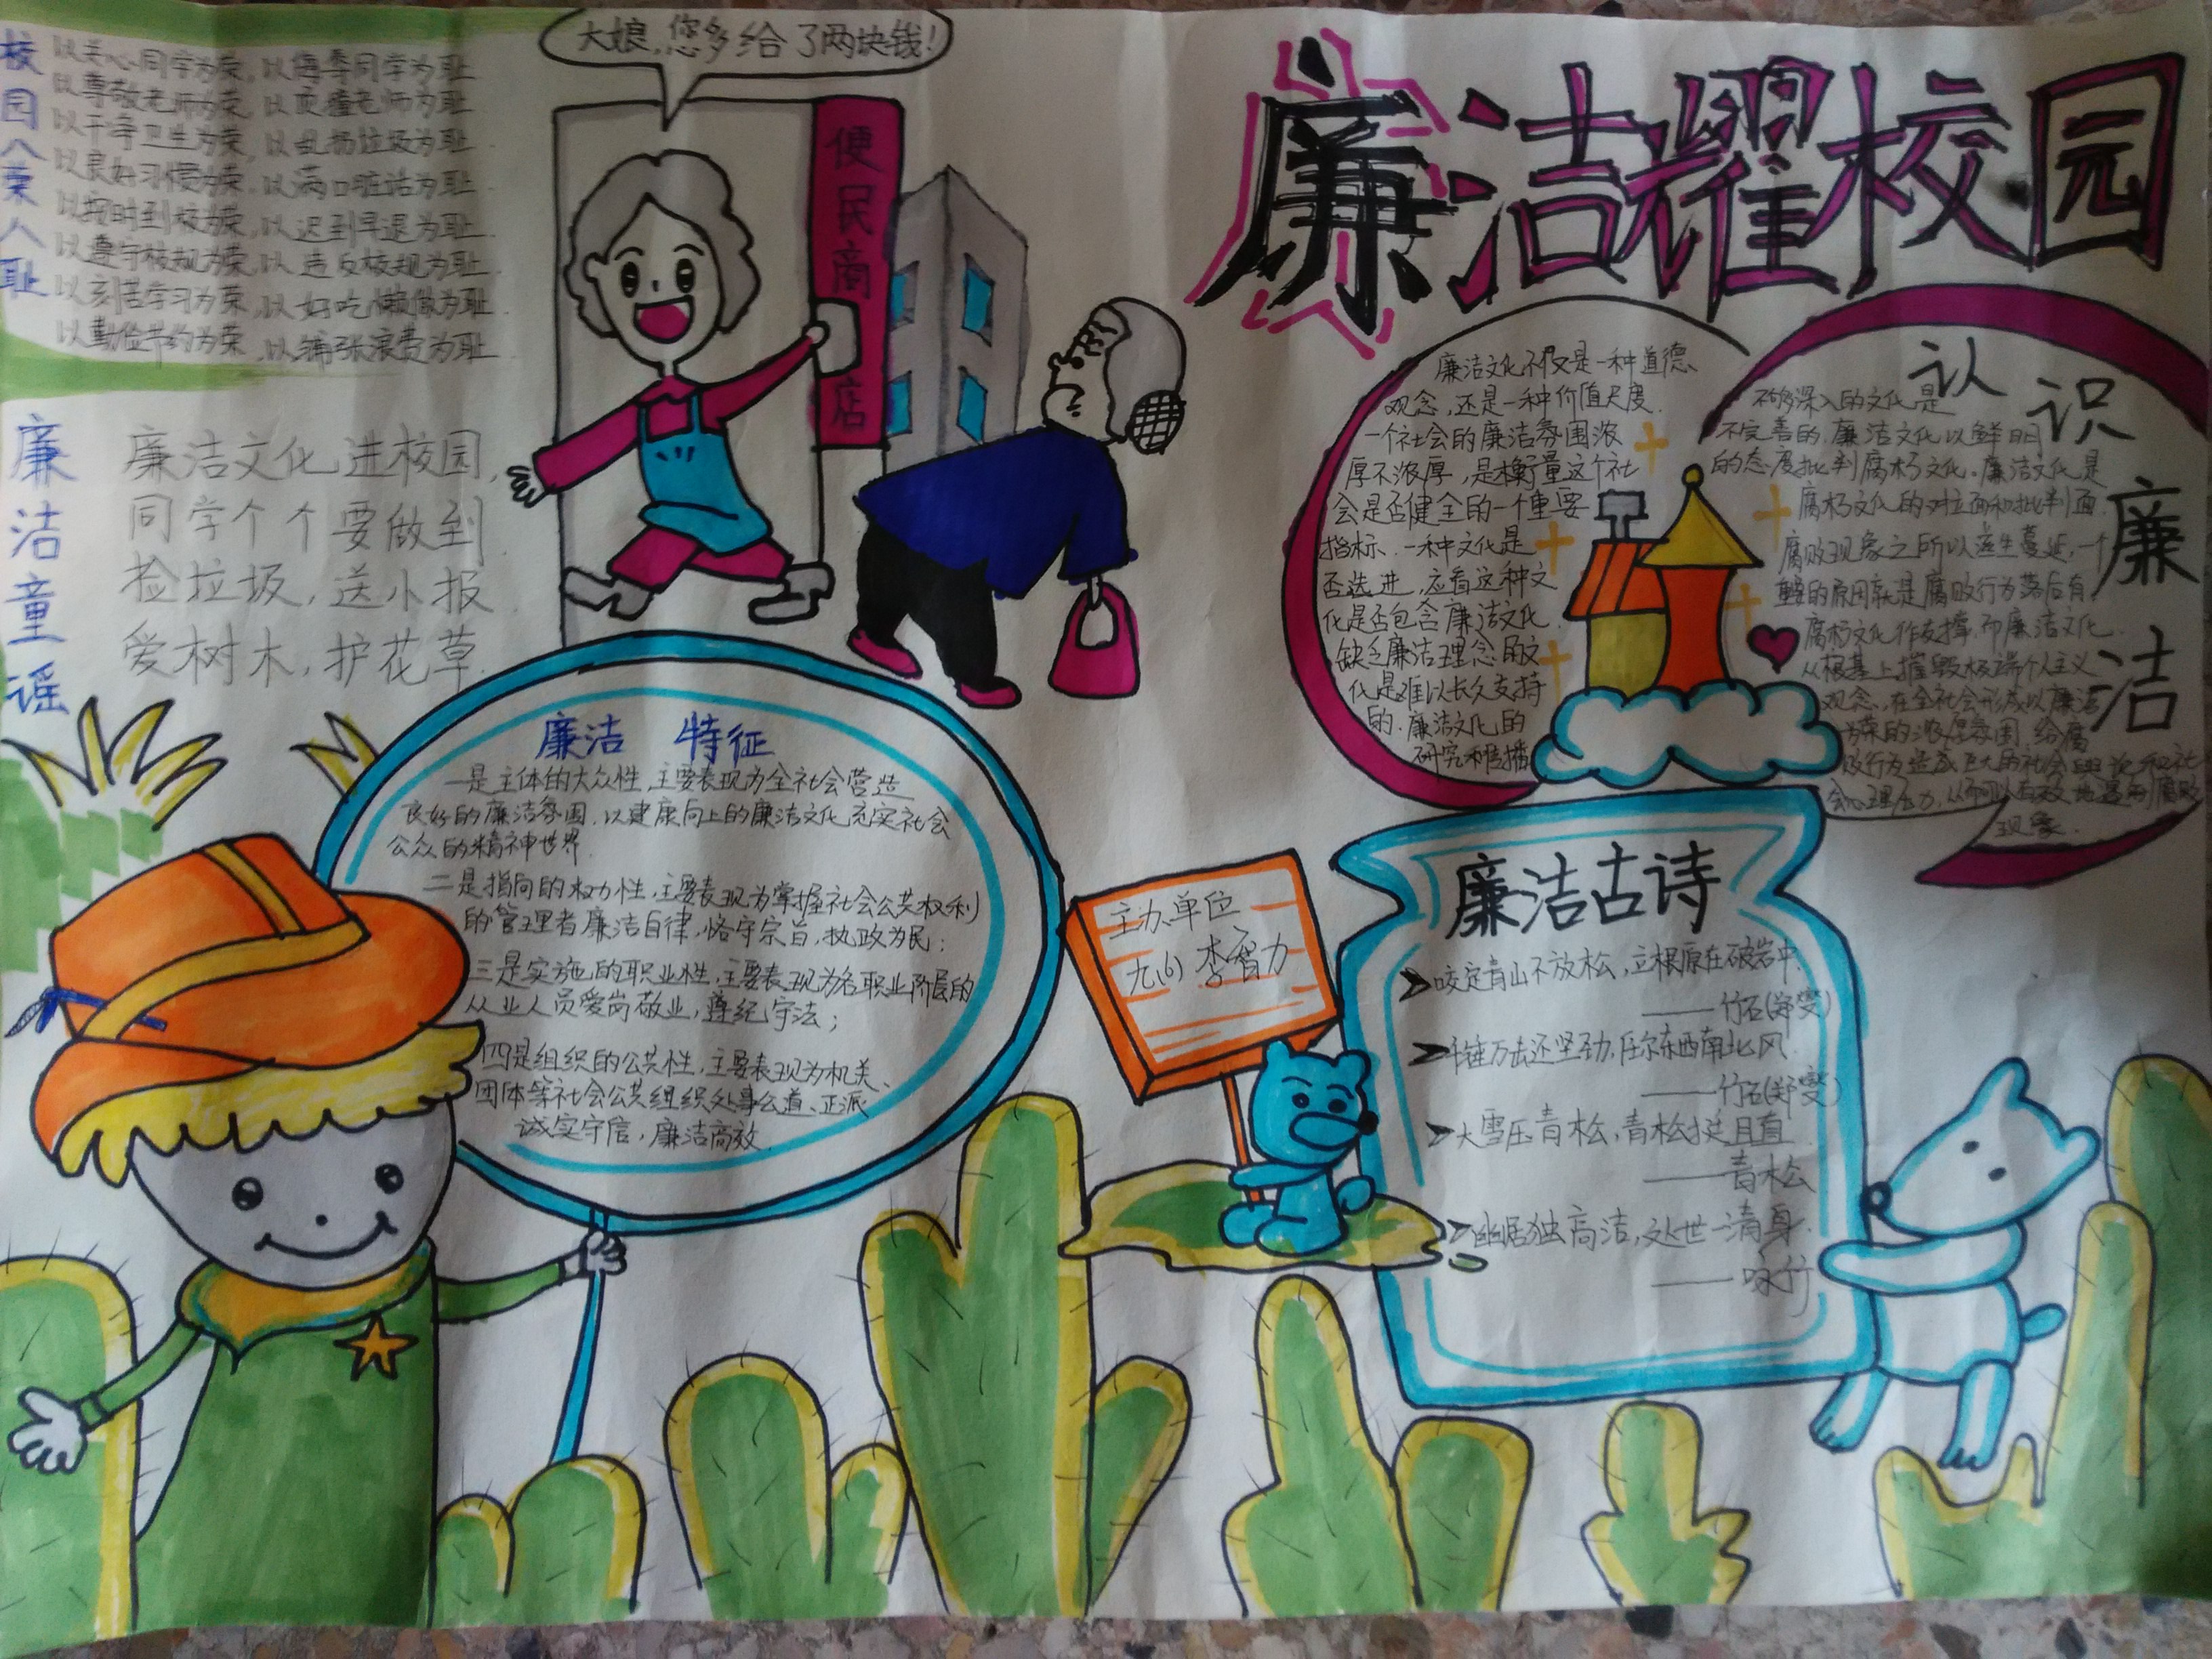 大娘,您多给了两块钱!
便民商店
廉洁耀校园
校园八荣八耻
以关心同学为荣,以侮辱同学为耻
以尊敬老师为荣,以顶撞老师为耻
以干净卫生为荣,以乱扔垃圾为耻
以良好习惯为荣,以满口脏话为耻
以按时到校为荣,以迟到早退为耻
以遵守校规为荣,以违反校规为耻
以刻苦学习为荣,以好吃懒做为耻
以勤俭节约为荣,以铺张浪费为耻
廉洁童谣
廉洁文化进校园,
同学个个要做到
捡垃圾,送小报
爱树木,护花草
廉洁 特征
一是主体的大众性,主要表现为全社会营造
良好的廉洁氛围,以健康向上的廉洁文化充实社会
公众的精神世界.
二是指向的权力性,主要表现为掌握社会公共权利
的管理者廉洁自律,恪守宗旨,执政为民;
三是实施的职业性,主要表现为各职业阶层的
从业人员爱岗敬业,遵纪守法;
四是组织的公共性,主要表现为机关、
团体等社会公共组织处事公道、正派
诚实守信,廉洁高效.
认识廉洁
廉洁文化不仅是一种道德、
观念,还是一种价值尺度.
一个社会的廉洁氛围浓
厚不浓厚,是衡量这个社
会是否健全的一个重要
指标.一种文化是
否选进,应看这种文
化是否包含廉洁文化.
缺乏廉洁理念的文
化是难以长久支持
的.廉洁文化的
研究和传播
不够深入的文化是
不完善的.廉洁文化以鲜明
的态度批判腐朽文化.廉洁文化是
腐朽文化的对立面和批判面.
腐败现象之所以滋生蔓延,一个
重要的原因就是腐败行为落后有
腐朽文化作支撑.而廉洁文化
从根基上摧毁极端个人主义
观念,在全社会形成以廉洁
为荣的浓厚氛围 给腐
败行为造成巨大的社会舆论和社
会心理压力,从而可以有效地遏制腐败
现象.
主办单位
九(6) 李智力
廉洁古诗
咬定青山不放松,立根原在破岩中.
——竹石(郑燮)
千锤万击还坚劲,任尔东西南北风.
——竹石(郑燮)
大雪压青松,青松挺且直
——青松
幽居独高洁,处世一清身.
——咏竹